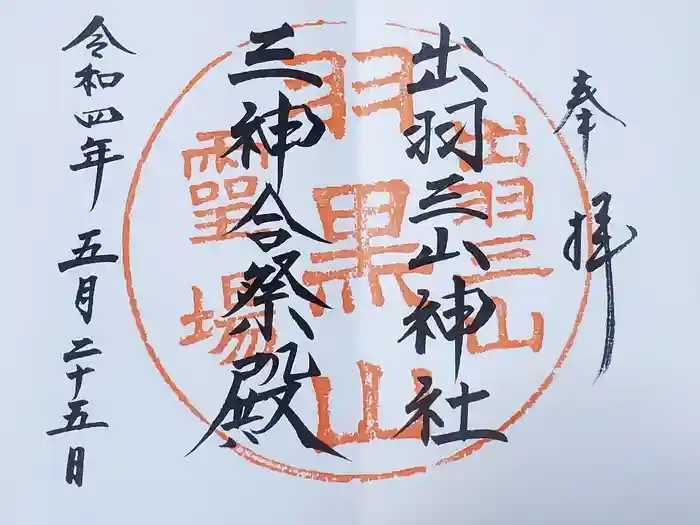 奉拝
出羽三山神社
三神合祭殿
令和四年 五月二十五日
出羽三山
羽黒山
霊場